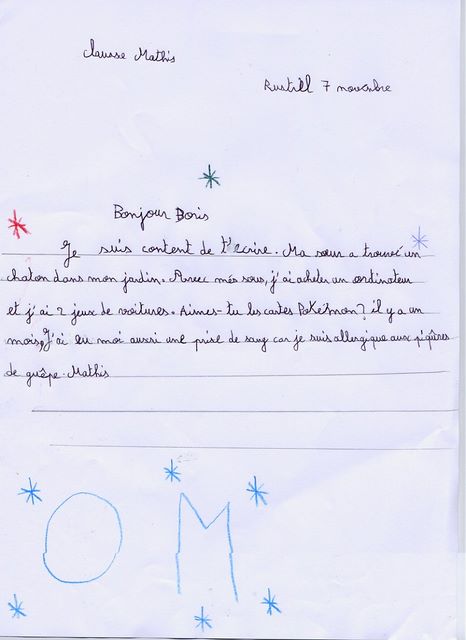 Clausse Mathis
Rustill 7 novembre
Bonjour Boris
Je suis content de t'écrire. Ma sœur a trouvé un
chaton dans mon jardin. Avec més sous, j'ai acheter un ordinateur
et j'ai 2 jeux de voitures. Aimes-tu les cartes Pokémon? il y a un
mois, J'ai eu moi aussi une prise de sang car je suis allergique aux piqûres
de guêpe. Mathis
O M